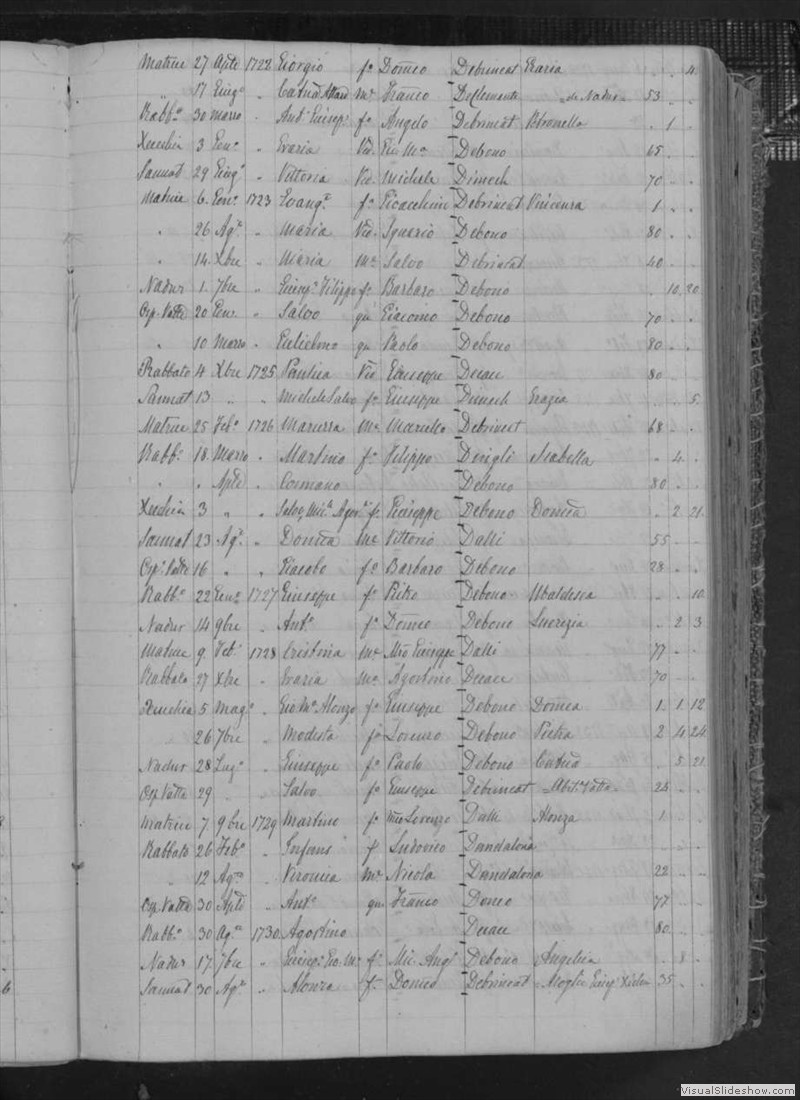 Matrice 27 Aple 1722 Giorgio f. Domco Debrincat Grazia . . 4
" 17 Giug. " Catna Attard Me Franco Declemente de Nadur 53 . .
Rabb. 30 Marzo " Ant. Giusep. f. Angelo Debrincat Petronella . 1 .
Xeuchia 3 Gen. " Grazia Ved. Gio Ma Debono 65 . .
Sannat 29 Giug. " Vittoria Ve. Michele Dimech 70 . .
Matrice 6 Gen. 1723 Evang. f. Gioacchino Debrincat Vincenza 1 . .
" 26 Ag. " Maria Ved. Ignazio Debono 80 . .
" 14 Xbre " Maria Me. Salvo Debrincat 40 . .
Nadur 1 7bre " Giusep. Filippo f. Barbaro Debono . 10 20
Osp. Vatta 20 Gen. " Salvo qu Giacomo Debono 70 . .
" 10 Marzo " qu Paolo Debono 80 . .
Rabbato 4 Xbre 1725 Paulica Ved Giuseppe 80 . .
Sannat 13 " " Michele Salvo f. Giuseppe Dimech Grazia . . 5
Matrice 25 Feb. 1726 Marietta Me. Debrincat 68 . .
Rabb. 18 Marzo " Martino f. Filippo Dingli Isabella . 4 .
" " Aple " Cosmano Debono 80 . .
Xeuchia 3 " " Salvo, Mic. f. Giuseppe Debono Domca . 2 21
Sannat 23 Ag. " Domca Me Vittorio Dalli 55 . .
Osp. Vatta 16 " " Giacobo f. Barbaro Debono 28 . .
Rabb. 22 Gen. 1727 Giuseppe f. Pietro Debono Ubaldesca . . 10
Nadur 14 9bre " Ant. f. Domco Debono Lucrezia . 2 3
Matrice 9 Feb. 1728 Cristina Me. Mro Giuseppe Dalli 77 . .
Rabbato 27 Xbre " Grazia Me. Agostino 70 . .
Xeuchia 5 Mag. " Gio Ma Alonzo f. Giuseppe Debono Domca 1 1 12
" 26 7bre " Modesta f. Lorenzo Debono Pietra 2 4 24
Nadur 28 Lug. " Giuseppe f. Paolo Debono Catna . 5 21
Osp. Vatta 29 " " Salvo f. Giuseppe Debrincat Abit. Vatta 25 . .
Matrice 7 9bre 1729 Martino f. Mro Lorenzo Dalli Alonza 1
Rabbato 26 Feb. " f. Ludovico Dandalona . . .
" 12 Ag. " Veronica Me. Nicola Dandalona 22 . .
Osp. Vatta 30 Aple " Ant. qu Franco 77 . .
Rabb. 30 Ag. 1730 Agostino 80 . .
Nadur 17 7bre " Giusep. Gio. M. f. Mic. Ang. Debono Angelica . 8 .
Sannat 30 Ag. " Alonza f. Domco Debrincat Moglie 35 . .
6
VisualSlideshow.com